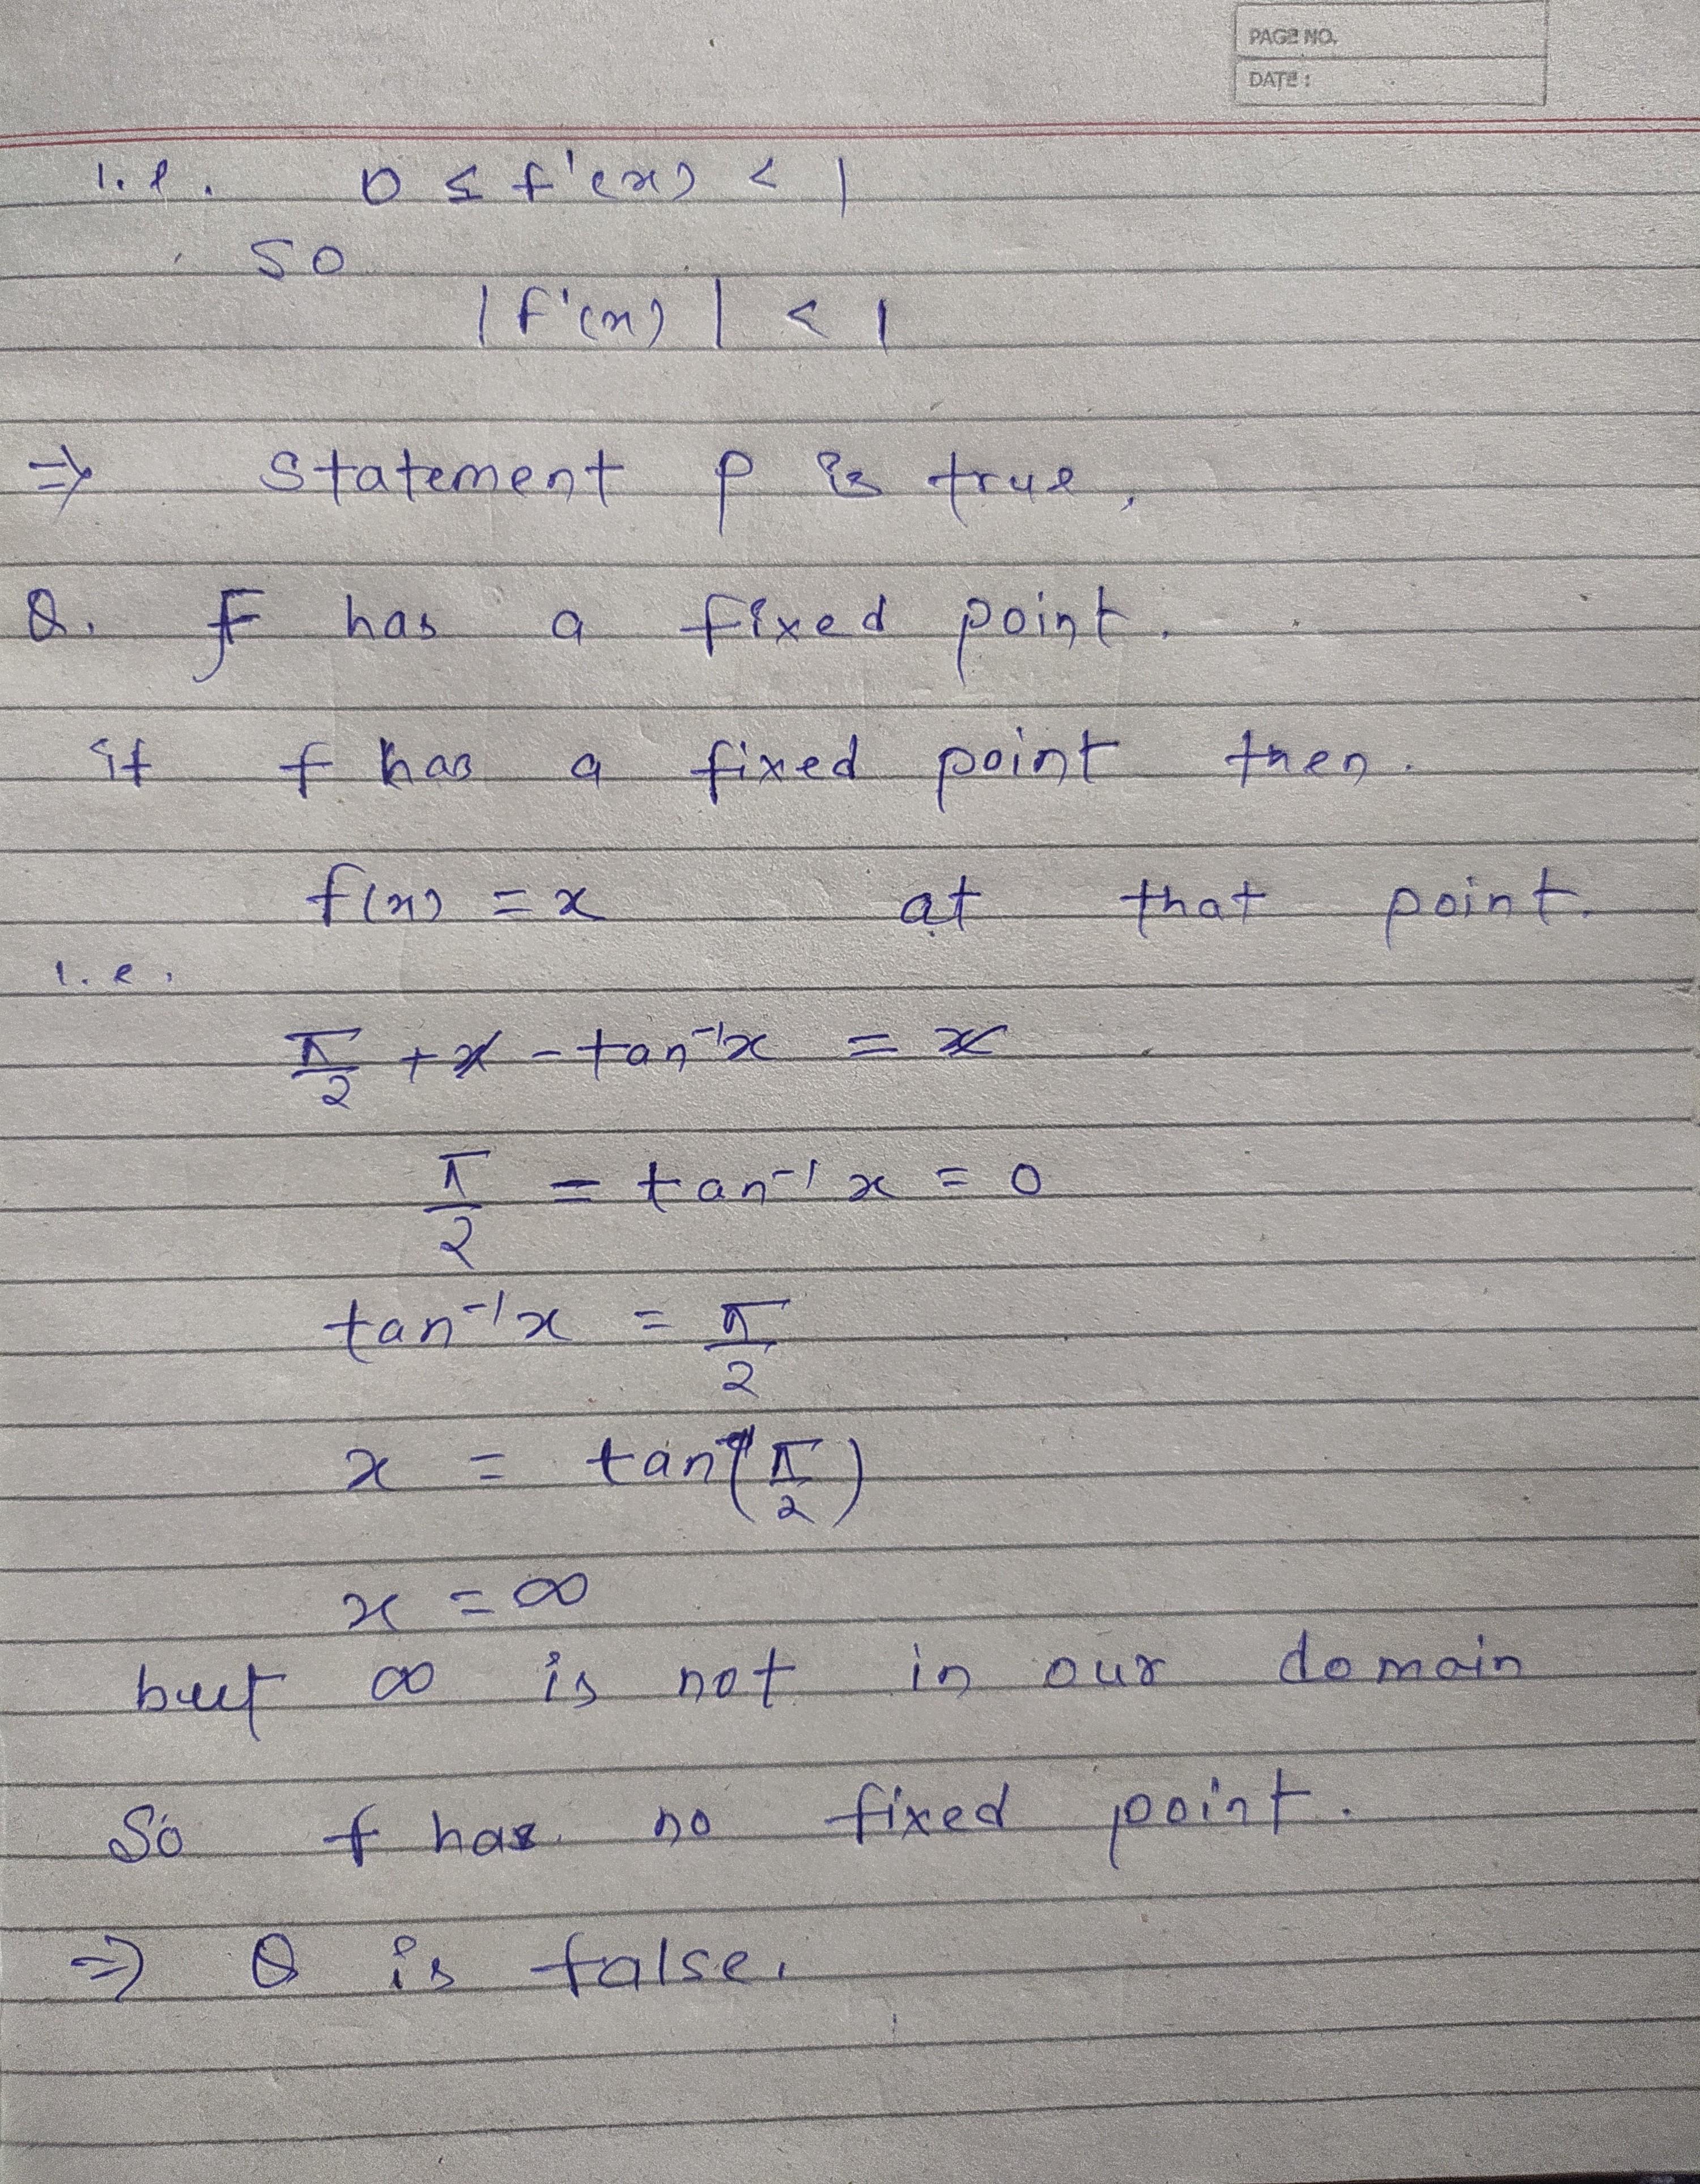 PAGE NO.
DATE :
i.e. 0 ≤ f'(x) < 1
so
|f'(x)| < 1
⇒ statement P is true.
Q. F has a fixed point.
if f has a fixed point then.
f(x) = x at that point.
i.e.
π/2 + x - tan⁻¹x = x
π/2 = tan⁻¹x = 0
tan⁻¹x = π/2
x = tan(π/2)
x = ∞
but ∞ is not in our domain
So f has no fixed point.
⇒ Q is false.